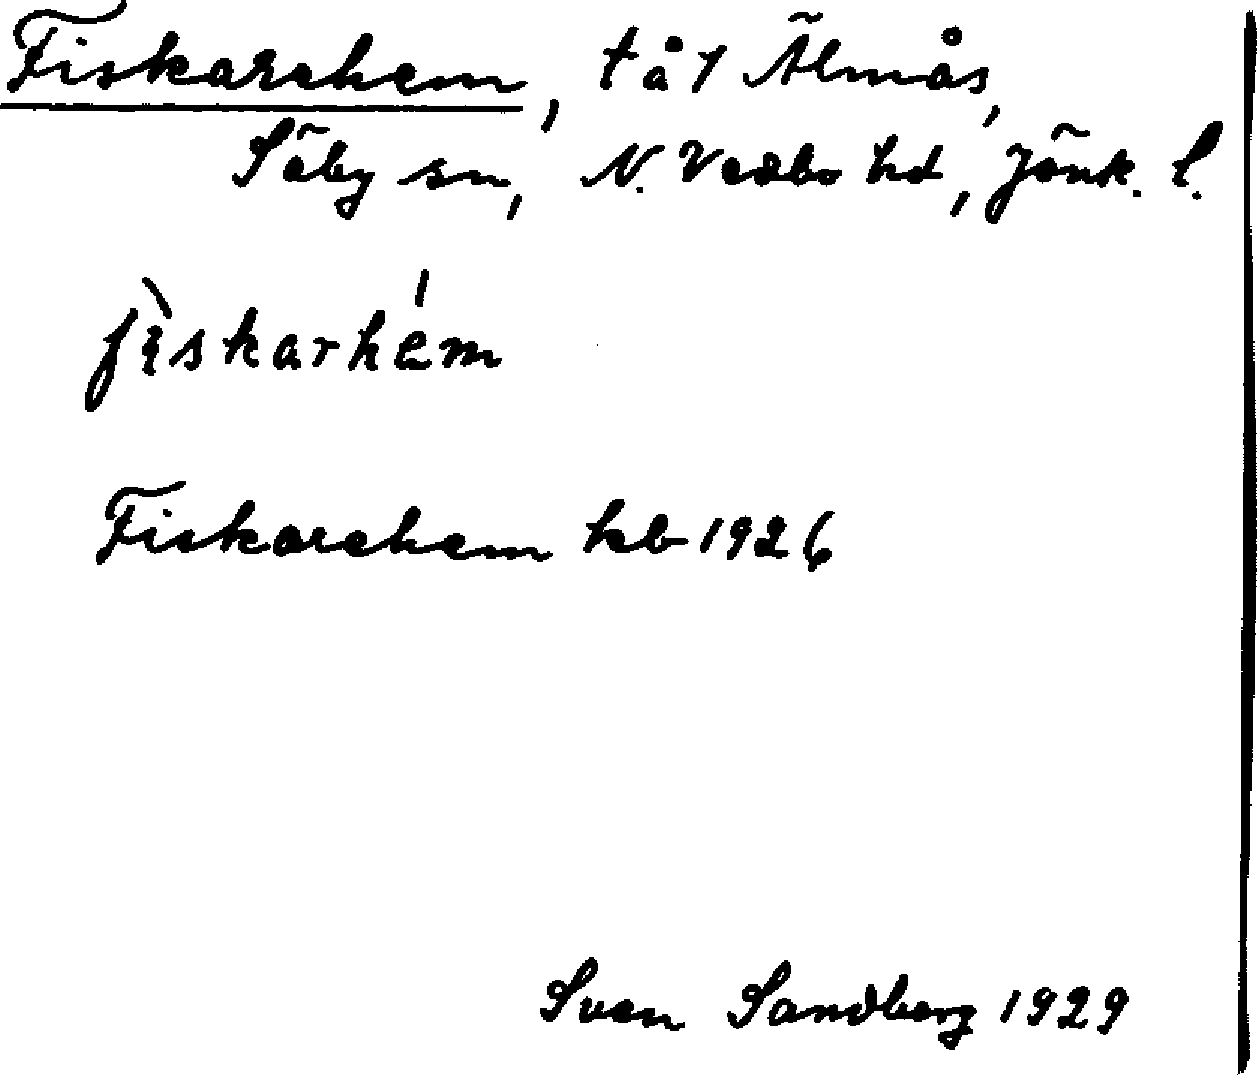 Fiskarehem, t å 1 Älmås,
Säby sn, N. Vedbo hd, Jönk. l.
fìskarhém
Fiskarehem kb 1926
Sven Sandberg 1929